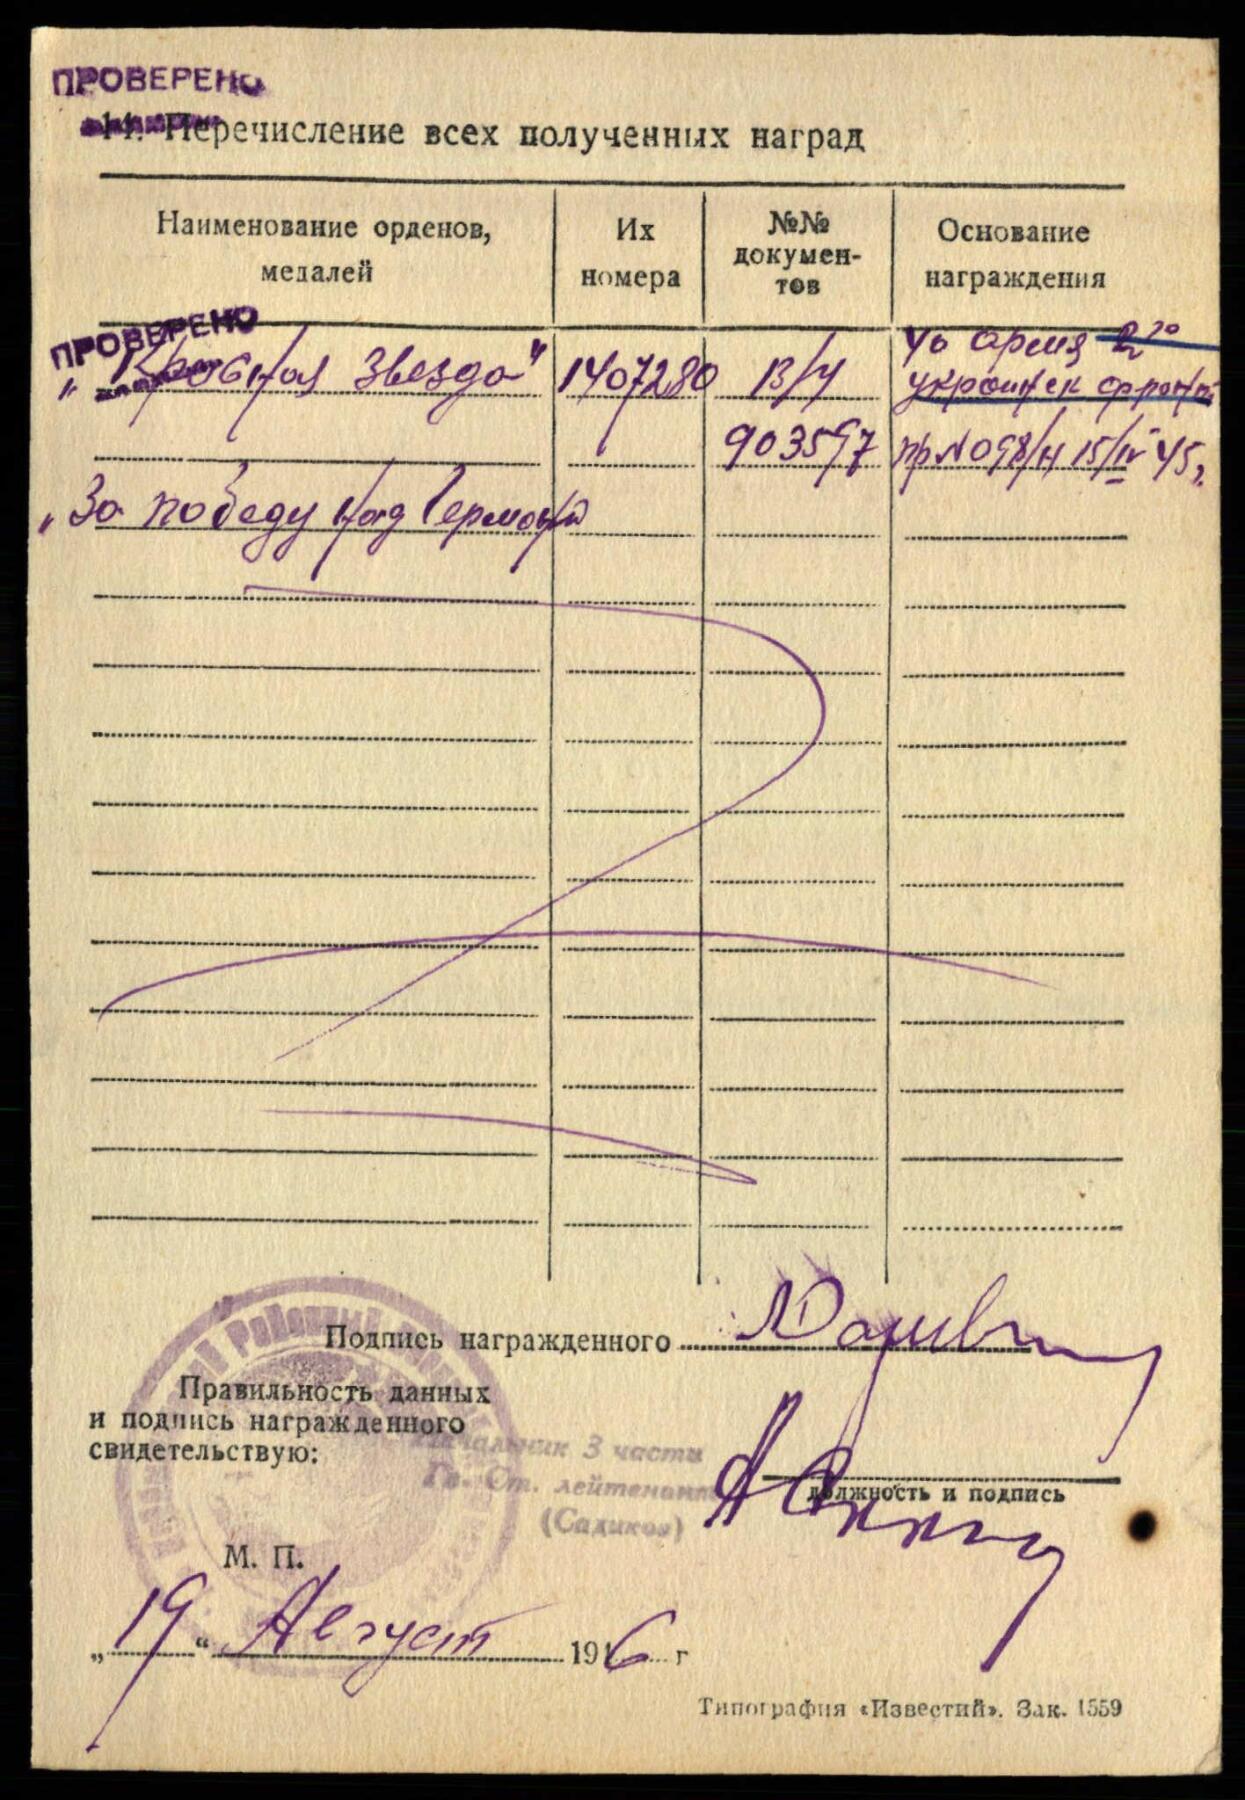 ПРОВЕРЕНО
14. Перечисление всех полученных наград
Наименование орденов, медалей
Их номера
№№ докумен-тов
Основание награждения
ПРОВЕРЕНО
„Красная Звезда" 1407280 В/Ч 40 Армия 2го
украинск фронт
903597 пр N 098/н 15/IV 45г.
„За победу над Германи
Подпись награжденного
Правильность данных
и подпись награжденного
свидетельствую:
Начальник 3 части
Гв. Ст. лейтенант
(Садиков)
должность и подпись
М. П.
„19" Август 1946 г
Типография «Известий». Зак. 1559